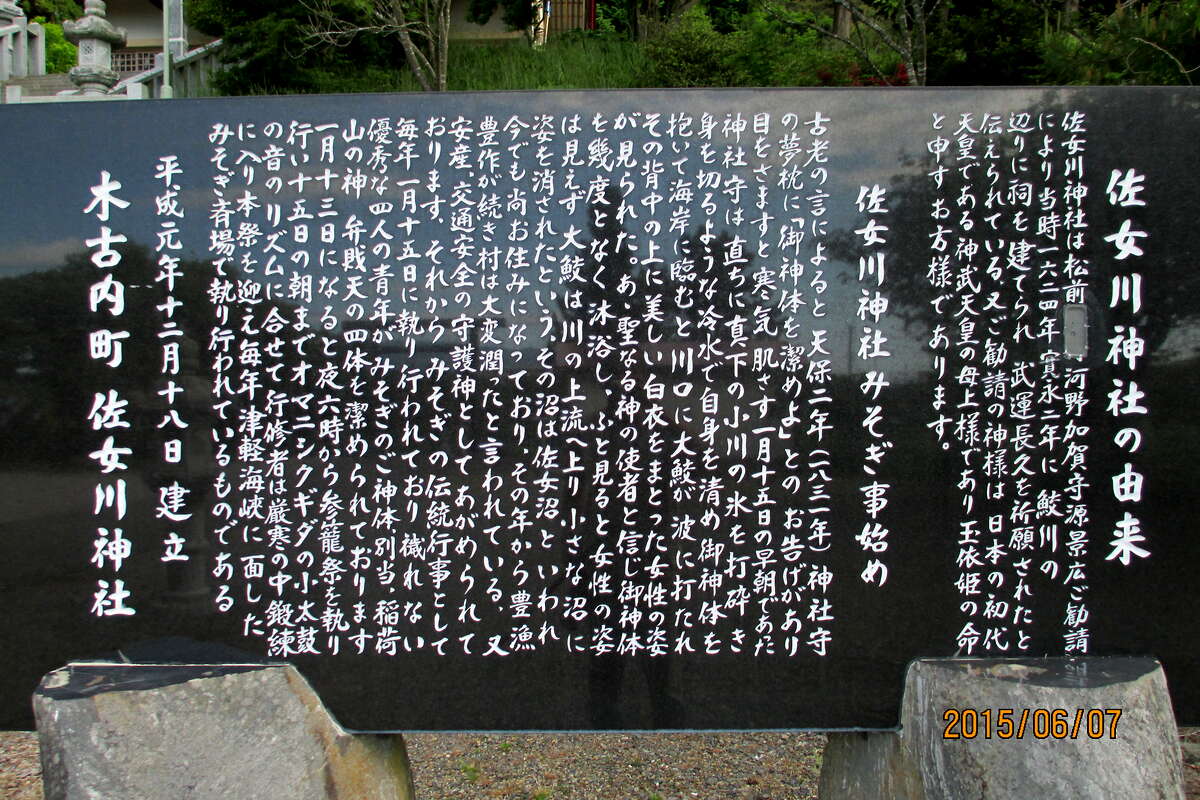 佐女川神社の由来
佐女川神社は松前
河野加賀守源景広ご勧請
により当時一六二四年寛永二年に 鮫川の
辺りに祠を建てられ 武運長久を祈願されたと
伝えられている。又ご勧請の神様は 日本の初代
天皇である神武天皇の母上様であり 玉依姫の命
と申すお方様であります。
佐女川神社みそぎ事始め
古老の言によると 天保二年(一八三一年)神社守
の夢枕に「御神体を潔めよ」との お告げがあり
目をさますと寒気肌さす一月十五日の早朝であった
神社守は 直ちに真下の小川の氷を打砕き
身を切るような冷水で自身を清め 御神体を
抱いて海岸に臨むと川口に大鮫が 波に打たれ
その背中の上に美しい白衣をまとった女性の姿
が見られた。あゝ聖なる神の使者と信じ御神体
を幾度となく沐浴し、ふと見ると女性の姿
は見えず 大鮫は川の上流へ上り 小さな沼に
姿を消されたという。その沼は佐女沼といわれ
今でも尚お住みになっており、その年から豊漁
豊作が続き村は大変潤ったと言われている、又
安産、交通安全の守護神としてあがめられて
おります。それから みそぎの伝統行事として
毎年一月十五日に執り行われており 穢れない
優秀な四人の青年がみそぎのご神体別当、稲荷
山の神 弁財天の四体を潔められております
一月十三日になると夜六時から参籠祭を執り
行い十五日の朝までオマニシクギダの小太鼓
の音のリズムに合せて行修者は厳寒の中鍛練
に入り本祭を迎え毎年津軽海峡に面した
みそぎ斉場で執り行われているものである
平成元年十二月十八日 建立
木古内町 佐女川神社
2015/06/07